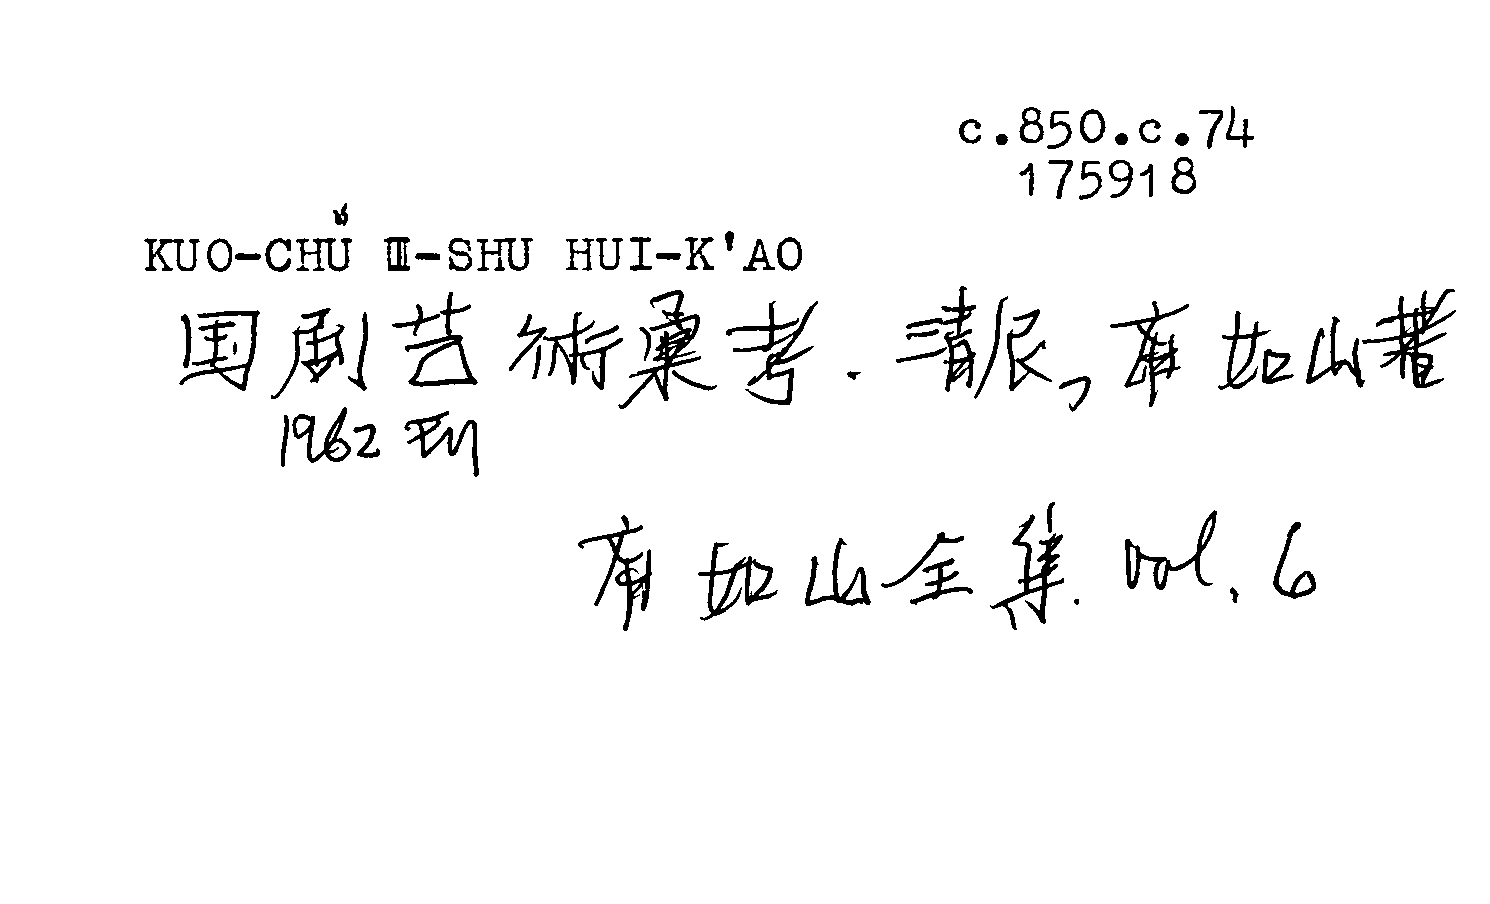 c.850.c.74
175918
KUO-CHÜ I-SHU HUI-K'AO
国剧艺術彙考. 清民, 齊如山著
1962
齊如山全集. vol. 6